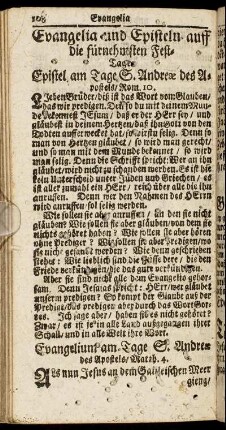 108 Evangelia
Evangelia und Episteln auff
die fürnehmsten Fest-
Tage.
Epistel am Tage S. Andreæ des A-
postels/ Rom. 10.
Lieben Brüder/ diß ist das Wort vom Glauben/
das wir predigen. Denn so du mit deinem Mun-
de bekennest JEsum/ daß er der HErr sey/ und
gläubest in deinem Hertzen/ daß ihn Gott von den
Todten aufferwecket hat/ so wirstu selig. Denn so
man von Hertzen gläubet/ so wird man gerecht/
und so man mit dem Munde bekennet/ so wird
man selig. Denn die Schrifft spricht: Wer an ihn
gläubet/ wird nicht zu schanden werden. Es ist hie
kein Unterscheid unter Jüden und Griechen/ es
ist aller zumahl ein HErr/ reich über alle die ihn
anruffen. Denn wer den Nahmen des HErrn
wird anruffen/ sol selig werden.
Wie sollen sie aber anruffen/ an den sie nicht
gläuben? Wie sollen sie aber gläuben/ von dem sie
nichts gehöret haben? Wie sollen sie aber hören
ohne Prediger? Wie sollen sie aber predigen/ wo
sie nicht gesandt werden? Wie denn geschrieben
stehet: Wie lieblich sind die Füsse derer/ die den
Friede verkündigen/ die das gute verkündigen.
Aber sie sind nicht alle dem Evangelio gehor-
sam. Denn Jesaias spricht: HErr/ wer gläubet
unserm predigen? So kompt der Glaube aus der
Predigt/ das predigen aber durch das Wort Got-
tes. Ich sage aber/ haben sie es nicht gehöret?
Zwar/ es ist je in alle Land außgegangen ihrer
Schall/ und in alle Welt ihre Wort.
Evangelium am Tage S. Andreæ
des Apostels/ Matth. 4.
Als nun Jesus an dem Galileischen Meer
gieng/